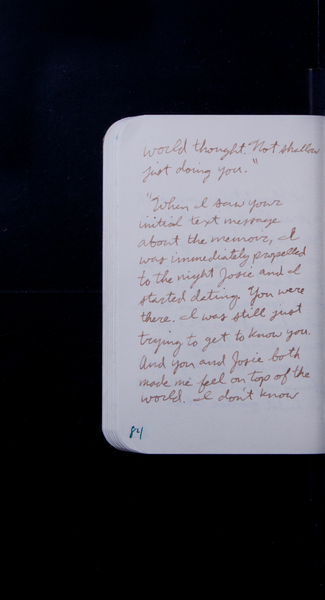 world thought. "Not shallow
just doing you."
"When I saw your
initial text message
about the memoir, I
was immediately propelled
to the night Josie and I
started dating. You were
there. I was still just
trying to get to know you.
And you and Josie both
made me feel on top of the
world. I don't know
84